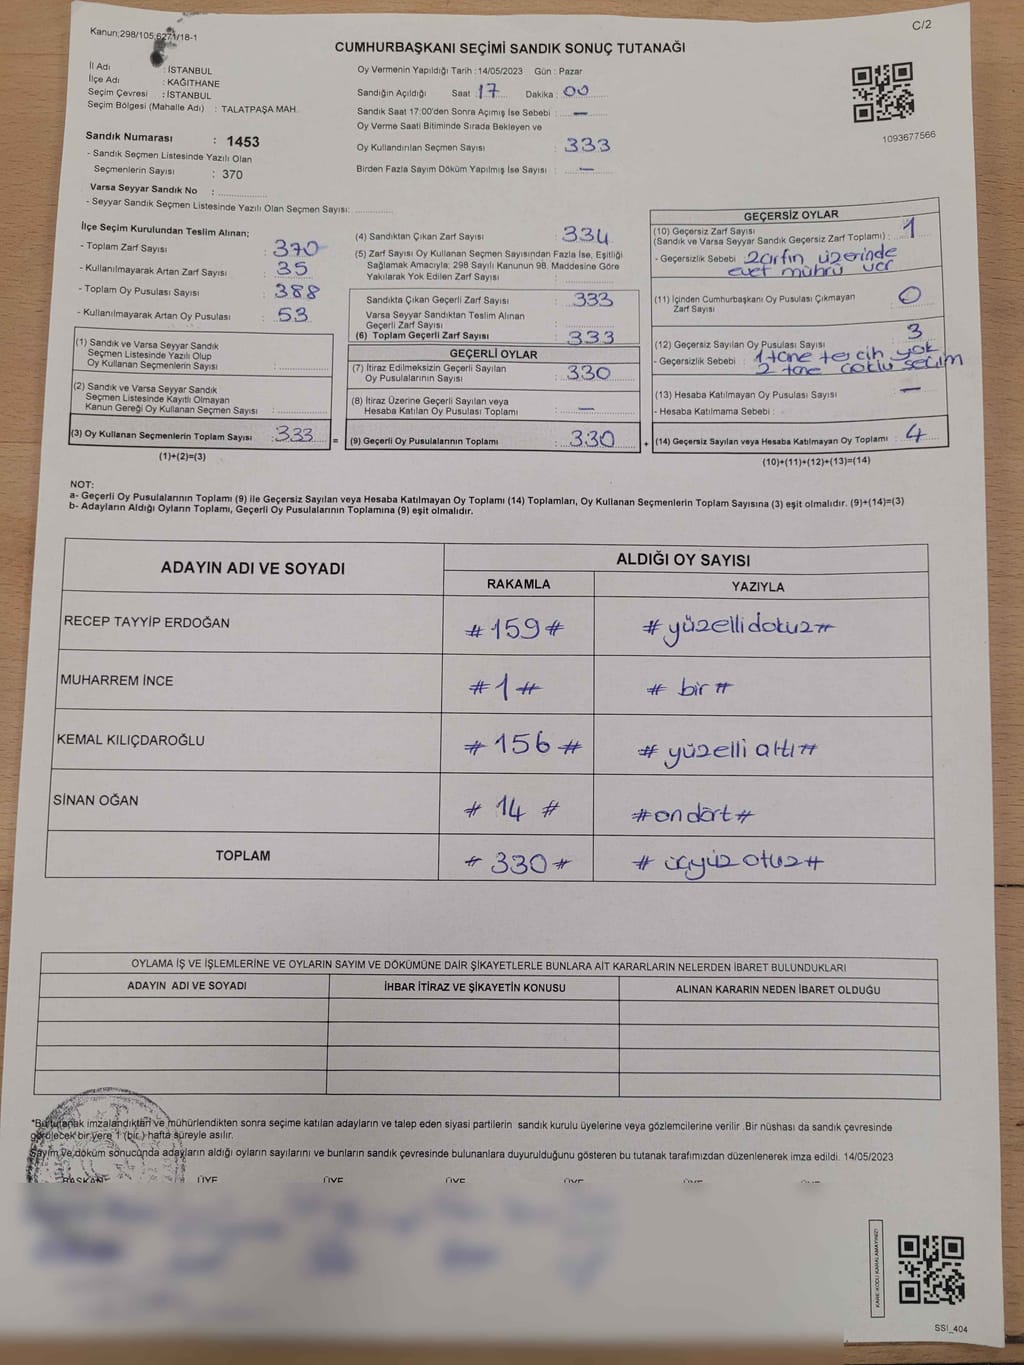 Kanun;298/105;6271/18-1
C/2
CUMHURBAŞKANI SEÇİMİ SANDIK SONUÇ TUTANAĞI
İl Adı : İSTANBUL
İlçe Adı : KAĞITHANE
Seçim Çevresi : İSTANBUL
Seçim Bölgesi (Mahalle Adı) : TALATPAŞA MAH.
Sandık Numarası : 1453
- Sandık Seçmen Listesinde Yazılı Olan
Seçmenlerin Sayısı : 370
Varsa Seyyar Sandık No :
- Seyyar Sandık Seçmen Listesinde Yazılı Olan Seçmen Sayısı:
Oy Vermenin Yapıldığı Tarih : 14/05/2023 Gün : Pazar
Sandığın Açıldığı Saat : 17 Dakika : 00
Sandık Saat 17:00'den Sonra Açımış İse Sebebi : —
Oy Verme Saati Bitiminde Sırada Bekleyen ve
Oy Kullandırılan Seçmen Sayısı : 333
Birden Fazla Sayım Döküm Yapılmış İse Sayısı : —
1093677566
İlçe Seçim Kurulundan Teslim Alınan;
- Toplam Zarf Sayısı : 370
- Kullanılmayarak Artan Zarf Sayısı : 35
- Toplam Oy Pusulası Sayısı : 388
- Kullanılmayarak Artan Oy Pusulası : 53
(1) Sandık ve Varsa Seyyar Sandık
Seçmen Listesinde Yazılı Olup
Oy Kullanan Seçmenlerin Sayısı :
(2) Sandık ve Varsa Seyyar Sandık
Seçmen Listesinde Kayıtlı Olmayan
Kanun Gereği Oy Kullanan Seçmen Sayısı :
(3) Oy Kullanan Seçmenlerin Toplam Sayısı : 333 =
(1)+(2)=(3)
(4) Sandıktan Çıkan Zarf Sayısı : 334
(5) Zarf Sayısı Oy Kullanan Seçmen Sayısından Fazla İse, Eşitliği
Sağlamak Amacıyla; 298 Sayılı Kanunun 98. Maddesine Göre
Yakılarak Yok Edilen Zarf Sayısı :
Sandıkta Çıkan Geçerli Zarf Sayısı : 333
Varsa Seyyar Sandıktan Teslim Alınan
Geçerli Zarf Sayısı :
(6) Toplam Geçerli Zarf Sayısı : 333
GEÇERLİ OYLAR
(7) İtiraz Edilmeksizin Geçerli Sayılan
Oy Pusulalarının Sayısı : 330
(8) İtiraz Üzerine Geçerli Sayılan veya
Hesaba Katılan Oy Pusulası Toplamı : —
(9) Geçerli Oy Pusulalarının Toplamı : 330 +
GEÇERSİZ OYLAR
(10) Geçersiz Zarf Sayısı
(Sandık ve Varsa Seyyar Sandık Geçersiz Zarf Toplamı) : 1
- Geçersizlik Sebebi : zarfın üzerinde
evet mührü var
(11) İçinden Cumhurbaşkanı Oy Pusulası Çıkmayan
Zarf Sayısı : 0
(12) Geçersiz Sayılan Oy Pusulası Sayısı : 3
- Geçersizlik Sebebi : 1 tane tercih yok
2 tane çoklu seçim
(13) Hesaba Katılmayan Oy Pusulası Sayısı : —
- Hesaba Katılmama Sebebi :
(14) Geçersiz Sayılan veya Hesaba Katılmayan Oy Toplamı : 4
(10)+(11)+(12)+(13)=(14)
NOT:
a- Geçerli Oy Pusulalarının Toplamı (9) ile Geçersiz Sayılan veya Hesaba Katılmayan Oy Toplamı (14) Toplamları, Oy Kullanan Seçmenlerin Toplam Sayısına (3) eşit olmalıdır. (9)+(14)=(3)
b- Adayların Aldığı Oyların Toplamı, Geçerli Oy Pusulalarının Toplamına (9) eşit olmalıdır.
ADAYIN ADI VE SOYADI
ALDIĞI OY SAYISI
RAKAMLA YAZIYLA
RECEP TAYYİP ERDOĞAN #159# #yüzellidokuz#
MUHARREM İNCE #1# # bir #
KEMAL KILIÇDAROĞLU #156# # yüzelli altı #
SİNAN OĞAN # 14 # #ondört#
TOPLAM #330# # üçyüz otuz #
OYLAMA İŞ VE İŞLEMLERİNE VE OYLARIN SAYIM VE DÖKÜMÜNE DAİR ŞİKAYETLERLE BUNLARA AİT KARARLARIN NELERDEN İBARET BULUNDUKLARI
ADAYIN ADI VE SOYADI İHBAR İTİRAZ VE ŞİKAYETİN KONUSU ALINAN KARARIN NEDEN İBARET OLDUĞU
*Bu tutanak imzalandıktan ve mühürlendikten sonra seçime katılan adayların ve talep eden siyasi partilerin sandık kurulu üyelerine veya gözlemcilerine verilir .Bir nüshası da sandık çevresinde
görülecek bir yere 1 (bir) hafta süreyle asılır.
Sayım ve döküm sonucunda adayların aldığı oyların sayılarını ve bunların sandık çevresinde bulunanlara duyurulduğunu gösteren bu tutanak tarafımızdan düzenlenerek imza edildi. 14/05/2023
BAŞKAN ÜYE ÜYE ÜYE ÜYE ÜYE ÜYE
KARE KODU KARALAMAYINIZ!
SSI_404